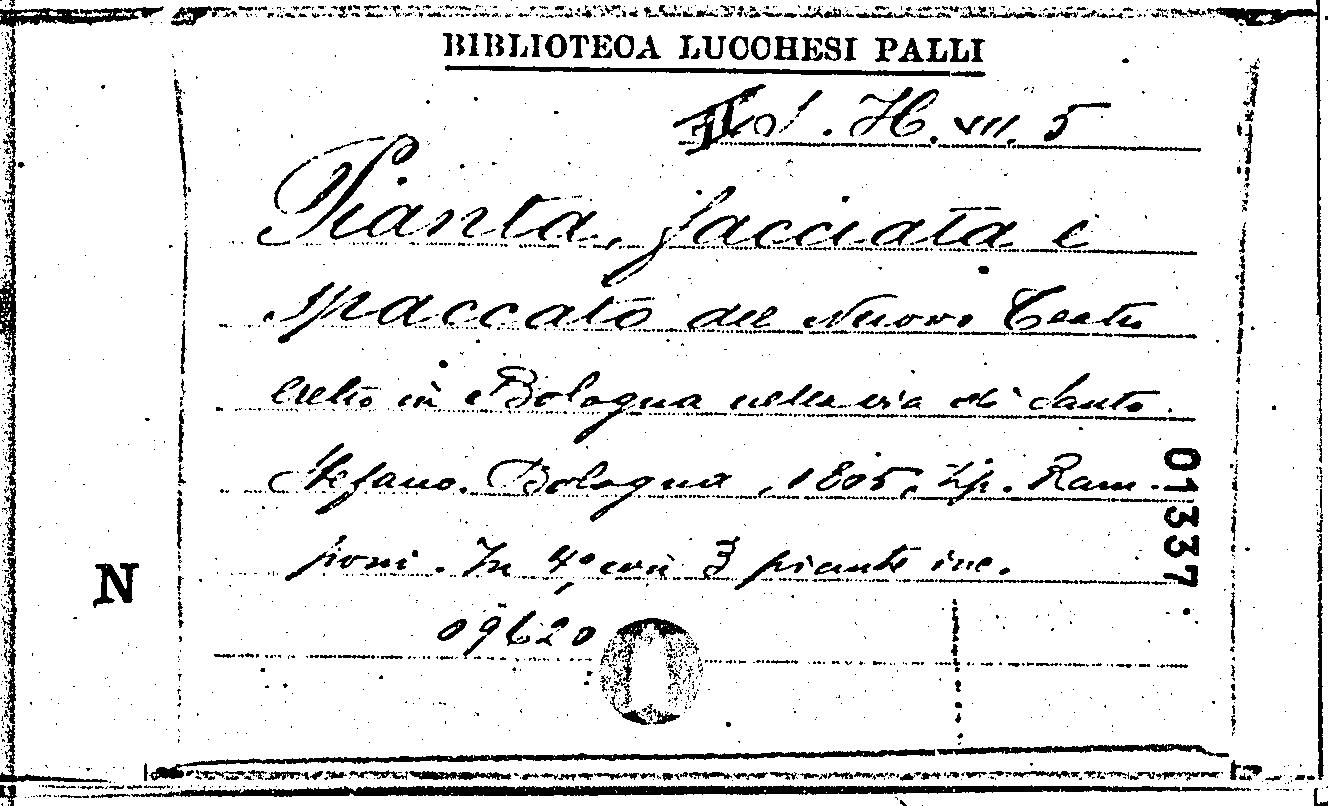 BIBLIOTECA LUCCHESI PALLI
H. VII. 5
Pianta, facciata e
spaccato del Nuovo Teatro
eretto in Bologna nella via di Santo
Stefano. Bologna, 1805, tip. Ram-
poni. In 4º con 3 piante inc.
09620
01337
N